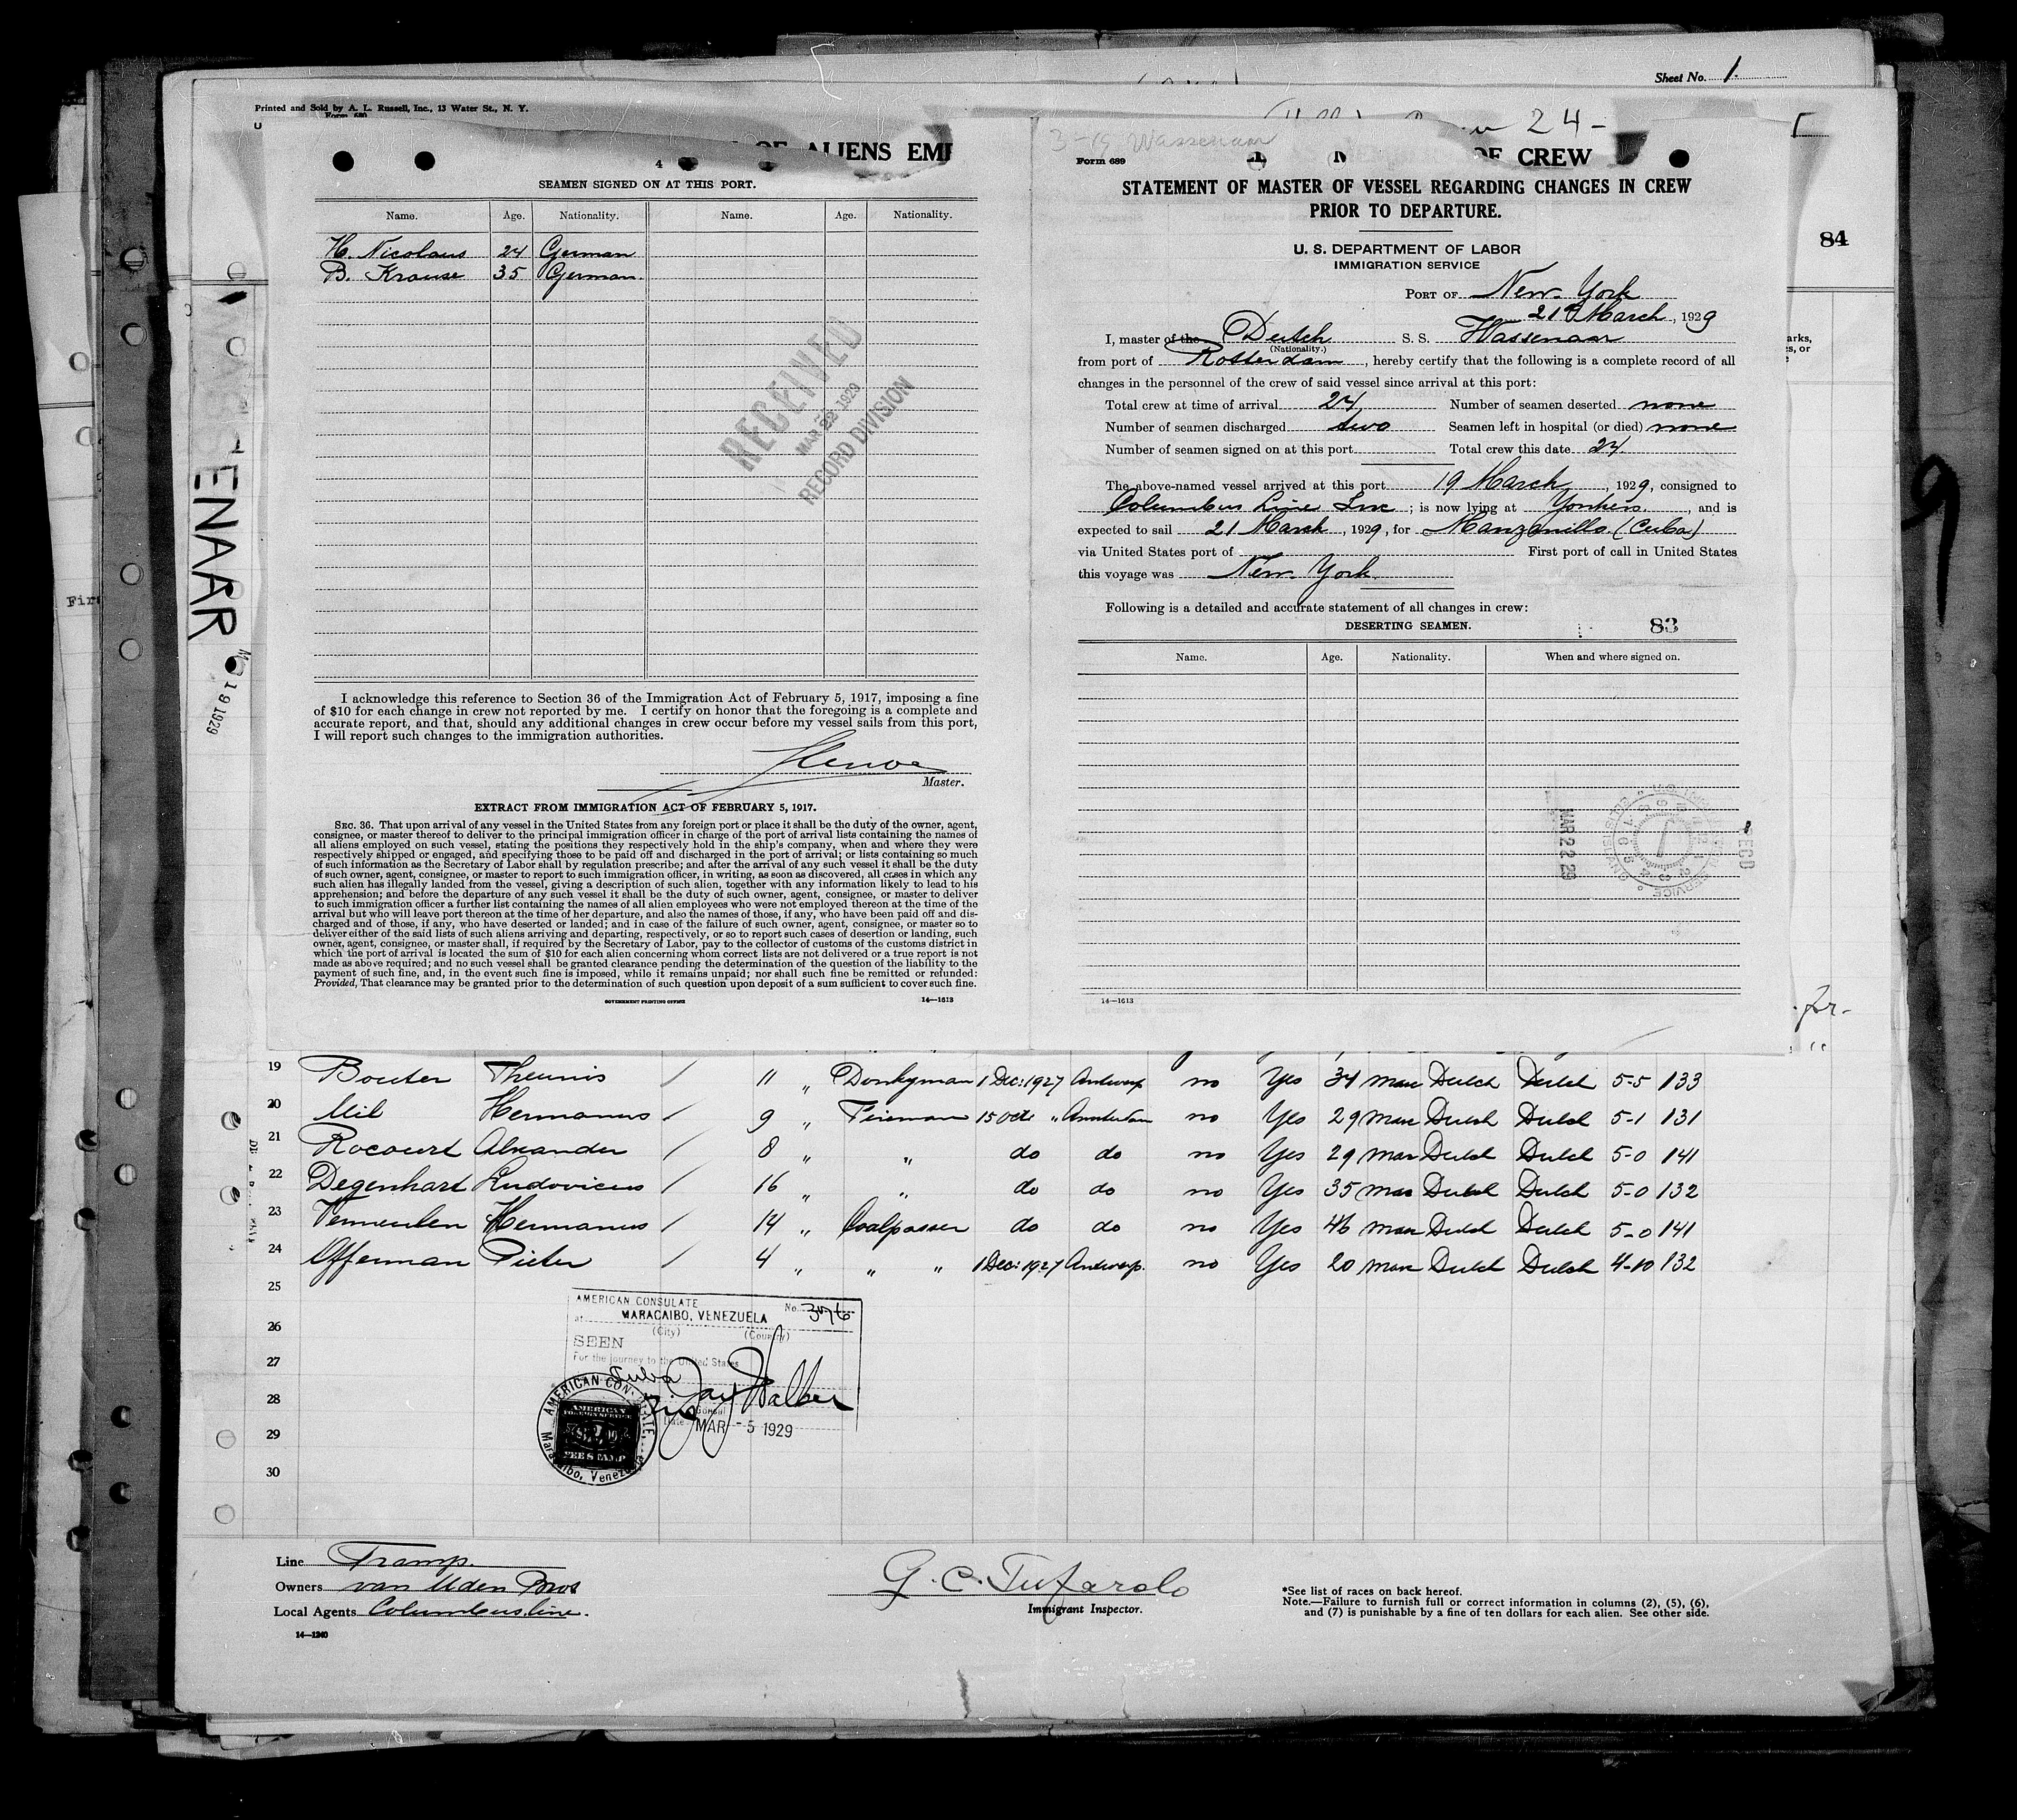 Sheet No. 1.
Printed and Sold by A. L. Russell, Inc., 13 Water St., N. Y.
Form 680
U
24-
OF ALIENS EM
4
SEAMEN SIGNED ON AT THIS PORT.
Name. Age. Nationality. Name. Age. Nationality.
H. Nicolaus 24 German
B. Krause 35 German.
RECEIVED
MAR 22 1929
RECORD DIVISION
I acknowledge this reference to Section 36 of the Immigration Act of February 5, 1917, imposing a fine
of $10 for each change in crew not reported by me. I certify on honor that the foregoing is a complete and
accurate report, and that, should any additional changes in crew occur before my vessel sails from this port,
I will report such changes to the immigration authorities.
Master.
EXTRACT FROM IMMIGRATION ACT OF FEBRUARY 5, 1917.
SEC. 36. That upon arrival of any vessel in the United States from any foreign port or place it shall be the duty of the owner, agent,
consignee, or master thereof to deliver to the principal immigration officer in charge of the port of arrival lists containing the names of
all aliens employed on such vessel, stating the positions they respectively hold in the ship's company, when and where they were
respectively shipped or engaged, and specifying those to be paid off and discharged in the port of arrival; or lists containing so much
of such information as the Secretary of Labor shall by regulation prescribe; and after the arrival of any such vessel it shall be the duty
of such owner, agent, consignee, or master to report to such immigration officer, in writing, as soon as discovered, all cases in which any
such alien has illegally landed from the vessel, giving a description of such alien, together with any information likely to lead to his
apprehension; and before the departure of any such vessel it shall be the duty of such owner, agent, consignee, or master to deliver
to such immigration officer a further list containing the names of all alien employees who were not employed thereon at the time of the
arrival but who will leave port thereon at the time of her departure, and also the names of those, if any, who have been paid off and dis-
charged and of those, if any, who have deserted or landed; and in case of the failure of such owner, agent, consignee, or master so to
deliver either of the said lists of such aliens arriving and departing, respectively, or so to report such cases of desertion or landing, such
owner, agent, consignee, or master shall, if required by the Secretary of Labor, pay to the collector of customs of the customs district in
which the port of arrival is located the sum of $10 for each alien concerning whom correct lists are not delivered or a true report is not
made as above required; and no such vessel shall be granted clearance pending the determination of the question of the liability to the
payment of such fine, and, in the event such fine is imposed, while it remains unpaid; nor shall such fine be remitted or refunded:
Provided, That clearance may be granted prior to the determination of such question upon deposit of a sum sufficient to cover such fine.
GOVERNMENT PRINTING OFFICE 14—1613
3-19 Wassenaar
Form 689
OF CREW
STATEMENT OF MASTER OF VESSEL REGARDING CHANGES IN CREW
PRIOR TO DEPARTURE.
U. S. DEPARTMENT OF LABOR
IMMIGRATION SERVICE
PORT OF New-York
21 March, 1929
I, master of the Dutch S. S. Wassenaar
(Nationality.)
from port of Rotterdam, hereby certify that the following is a complete record of all
changes in the personnel of the crew of said vessel since arrival at this port:
Total crew at time of arrival 24 Number of seamen deserted none
Number of seamen discharged two Seamen left in hospital (or died) none
Number of seamen signed on at this port Total crew this date 24.
The above-named vessel arrived at this port 19 March, 1929, consigned to
Columbus Line Inc; is now lying at Yonkers., and is
expected to sail 21 March, 1929, for Manzanillo (Cuba)
via United States port of First port of call in United States
this voyage was New-York.
Following is a detailed and accurate statement of all changes in crew:
DESERTING SEAMEN. 83
Name. Age. Nationality. When and where signed on.
MAR 22 29
RECD
14—1613
84
arks,
s, or
WASSENAAR
19 1929
19 Bouter Theunis / 11 " Donkyman 1 Dec: 1927 Antwerp no Yes 34 man Dutch Dutch 5-5 133
20 Mil Hermanus / 9 " Fireman 15 Oct " Amsterdam no Yes 29 man Dutch Dutch 5-1 131
21 Rocourt Alexander / 8 " " do do no Yes 29 man Dutch Dutch 5-0 141
22 Degenhart Ludovicus / 16 " " do do no Yes 35 man Dutch Dutch 5-0 132
23 Vermeulen Hermanus / 14 " Coalpasser do do no Yes 46 man Dutch Dutch 5-0 141
24 Offerman Pieter / 4 " " " 1 Dec: 1927 Antwerp. no Yes 20 man Dutch Dutch 4-10 132
25
26
27
28
29
30
AMERICAN CONSULATE No. 376
at MARACAIBO, VENEZUELA
(City) (Country)
SEEN
For the journey to the United States
Cuba
Jay Walker
Consul
Date MAR -5 1929
AMERICAN CONSULATE, Maracaibo, Venezuela
AMERICAN
FOREIGN SERVICE
FEE STAMP
Line Tramp.
Owners van Uden Bros
Local Agents Columbusline.
14—1240
G. C. Tufarolo
Immigrant Inspector.
*See list of races on back hereof.
Note.—Failure to furnish full or correct information in columns (2), (5), (6),
and (7) is punishable by a fine of ten dollars for each alien. See other side.